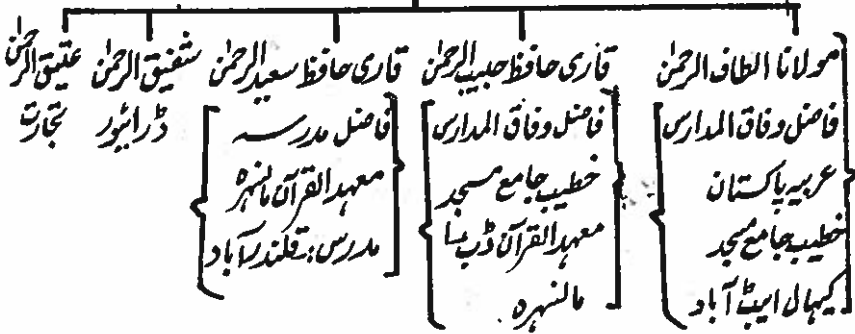 مولانا الطاف الرحمٰن
فاضل وفاق المدارس
عربیہ پاکستان
خطیب جامع مسجد
کیہال ایبٹ آباد
قاری حافظ حبیب الرحمٰن
فاضل وفاق المدارس
خطیب جامع مسجد
معہد القرآن ڈب ۲
مانسہرہ
قاری حافظ سعید الرحمٰن
فاضل مدرسہ
معہد القرآن مانسہرہ
مدرس: قلندرآباد
شفیق الرحمٰن
ڈرائیور
عتیق الرحمٰن
تجارت